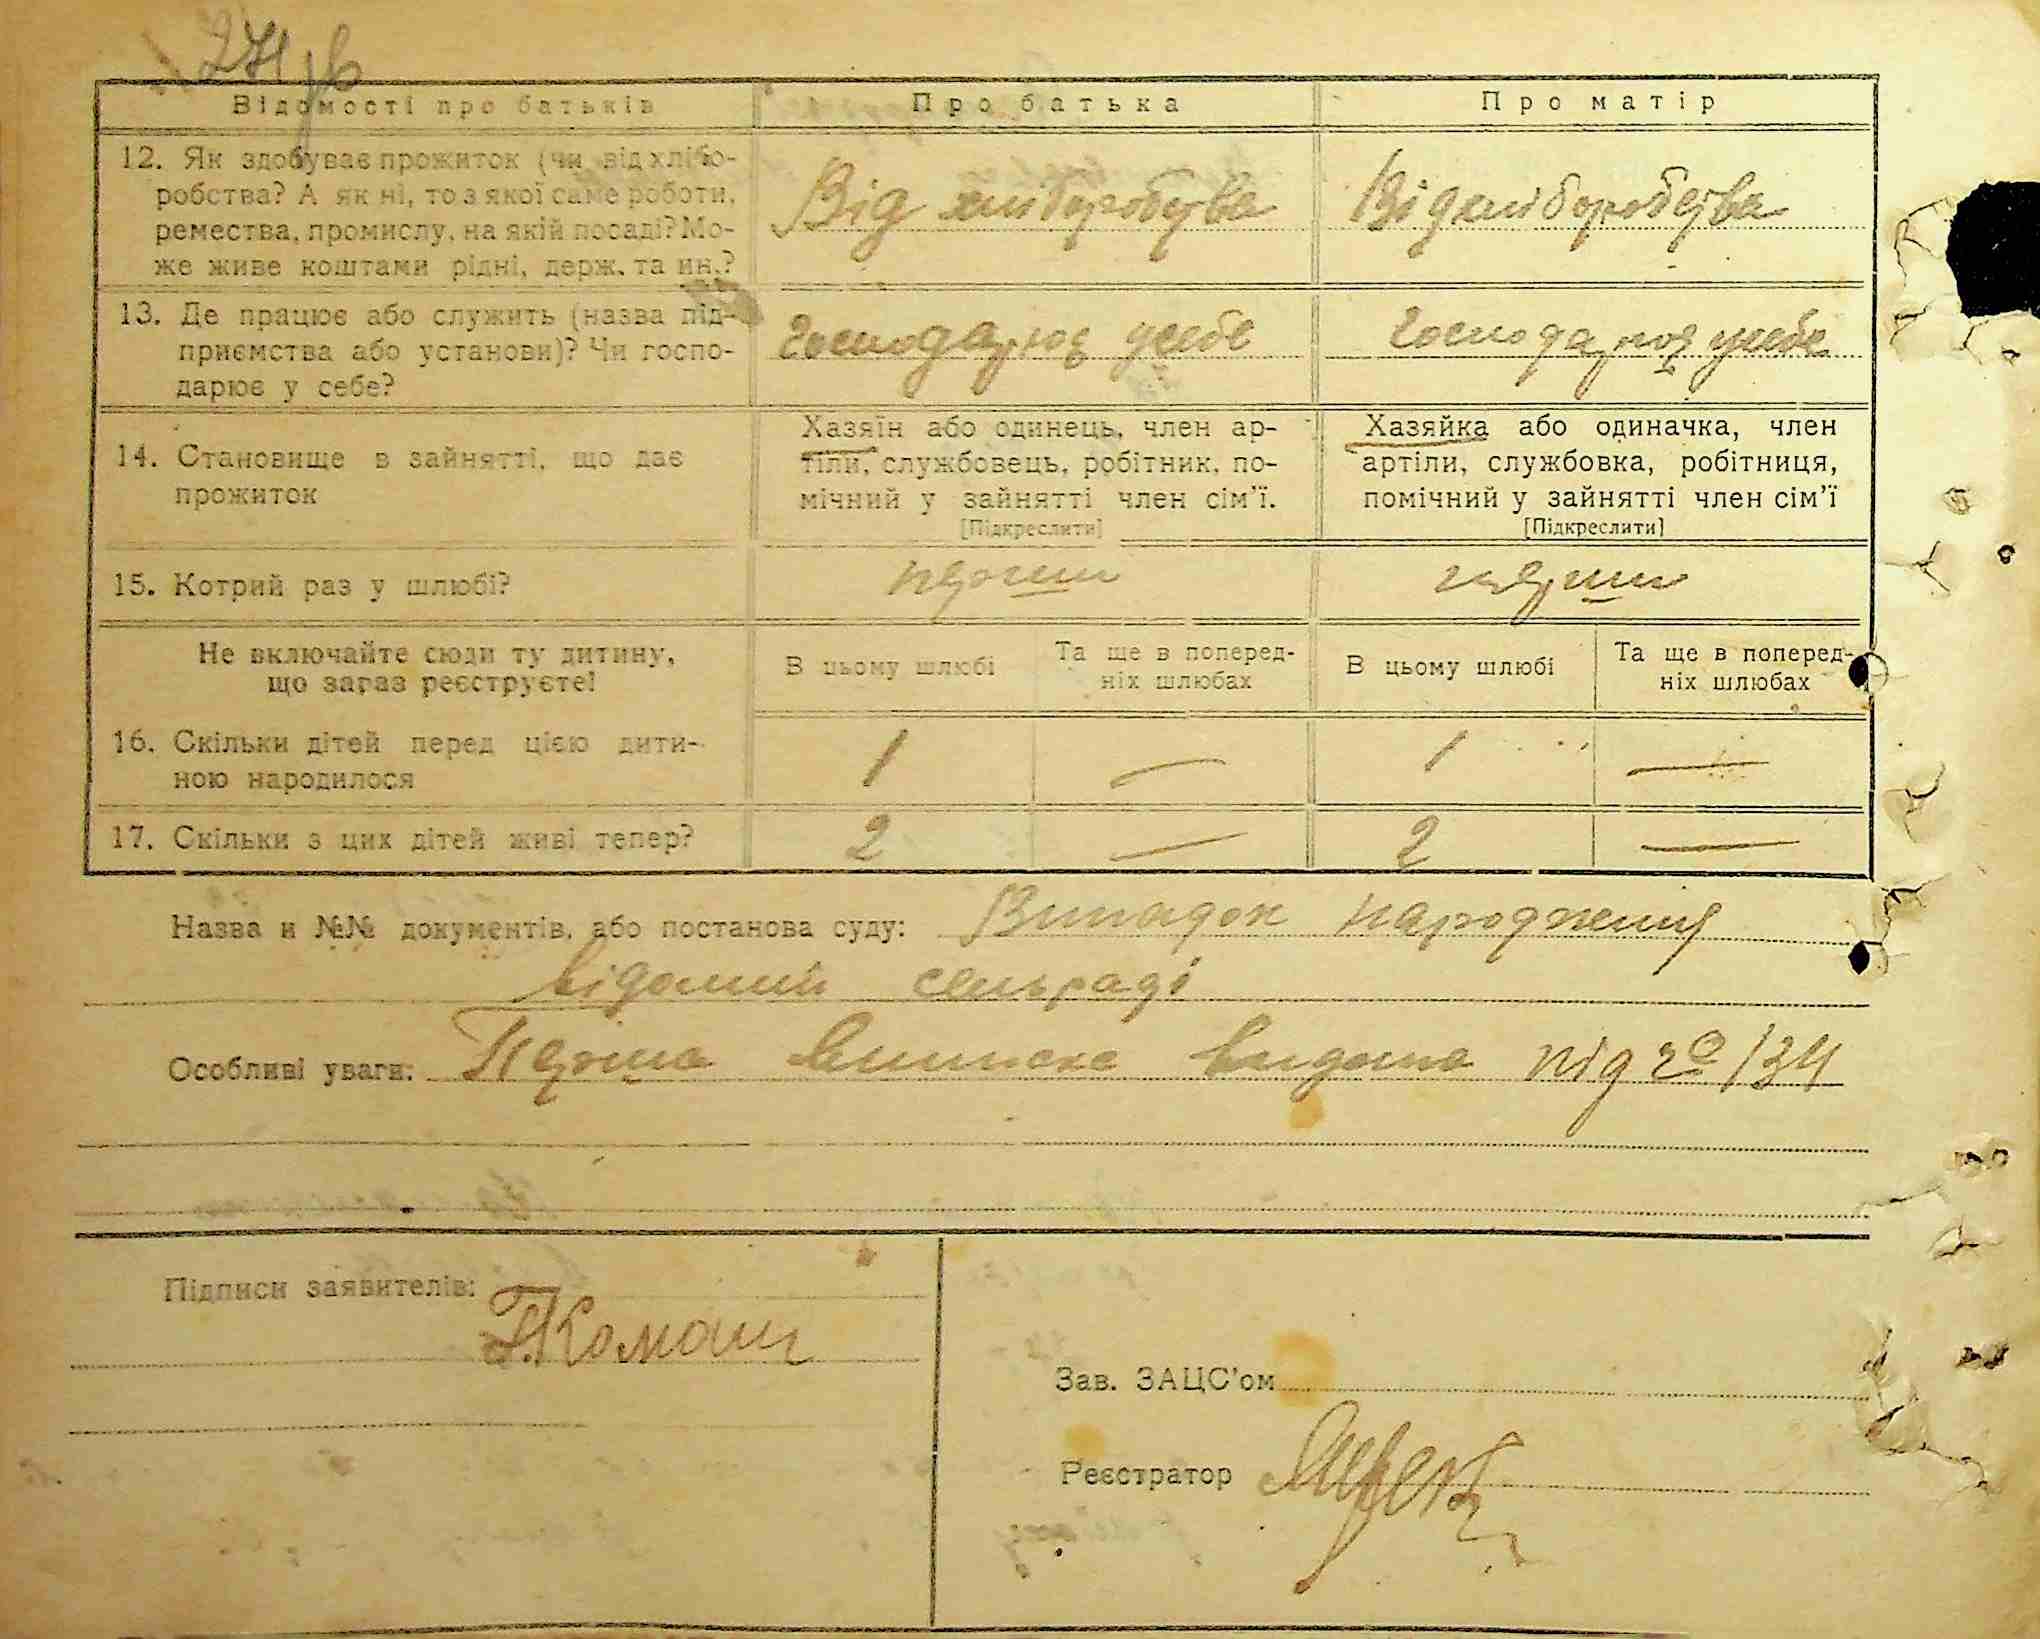 Відомості про батьків Про батька Про матір
12. Як здобуває прожиток (чи від хлібо-
робства? А як ні, то з якої саме роботи,
ремества, промислу, на якій посаді? Мо-
же живе коштами рідні, держ. та ин.?
Від хліборобства Від хліборобства
13. Де працює або служить (назва під-
приємства або установи)? Чи госпо-
дарює у себе?
Господарює у себе Господарює у себе
14. Становище в зайнятті, що дає
прожиток
Хазяїн або одинець, член ар-
тіли, службовець, робітник, по-
мічний у зайнятті член сім'ї.
[Підкреслити]
Хазяйка або одиначка, член
артіли, службовка, робітниця,
помічний у зайнятті член сім'ї
[Підкреслити]
15. Котрий раз у шлюбі? перший перший
Не включайте сюди ту дитину,
що зараз реєструєте!
В цьому шлюбі
Та ще в поперед-
ніх шлюбах
В цьому шлюбі
Та ще в поперед-
ніх шлюбах
16. Скільки дітей перед цією дити-
ною народилося
1 — 1 —
17. Скільки з цих дітей живі тепер? 2 — 2 —
Назва и №№ документів, або постанова суду: Випадок народження
відомий сельраді
Особливі уваги: Перша виписка видана під
Підписи заявителів:
Зав. ЗАЦС'ом
Реєстратор